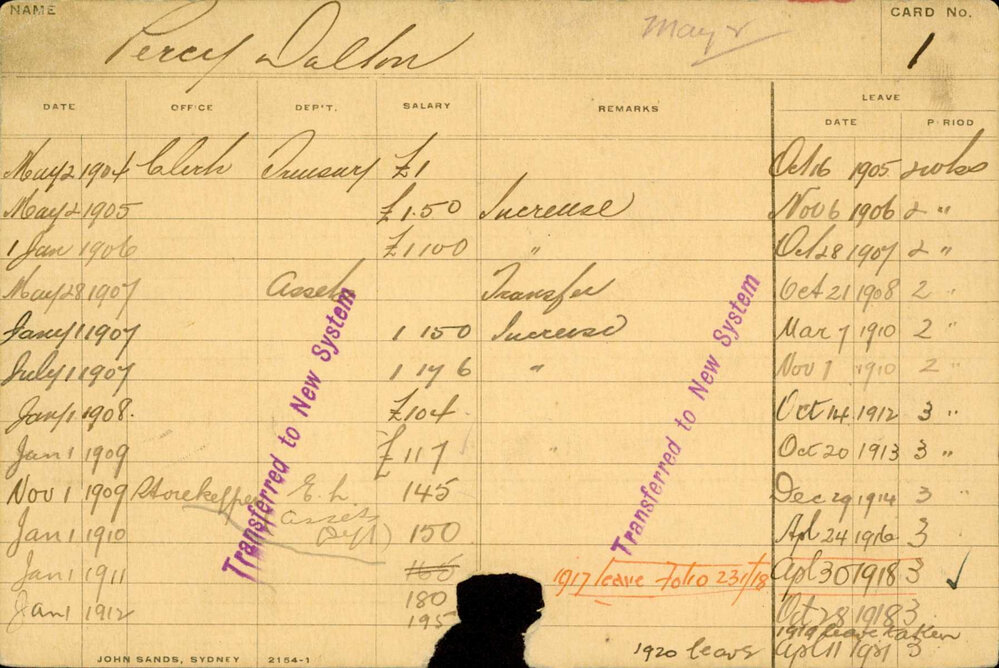 NAME
Percy Dalton
May 2
CARD No.
1
DATE OFFICE DEP'T. SALARY REMARKS LEAVE
DATE PERIOD
May 2 1904 Clerk Treasury £1 Oct 16 1905 2 wks
May 2 1905 £1.50 Increase Nov 6 1906 2 "
1 Jan 1906 £1100 " Oct 28 1907 2 "
May 28 1907 Assets Transfer Oct 21 1908 2 "
Jany 1 1907 1 150 Increase Mar 7 1910 2 "
July 1 1907 1 17 6 " Nov 1 1910 2 "
Jany 1 1908. £104 Oct 14 1912 3 "
Jan 1 1909 £117 " Oct 20 1913 3 "
Nov 1 1909 Storekeeper E. L. 145 Dec 29 1914 3 "
Jan 1 1910 Assets Dept) 150 Apl 24 1916 3
Jan 1 1911 160 1917 leave Folio 231/18 Apl 30 1918 3 ✓
Jan 1 1912 180 Oct 28 1918 3
195 1919 leave taken
1920 leave Apl 11 1921 3
Transferred to New System
Transferred to New System
JOHN SANDS, SYDNEY 2154-1